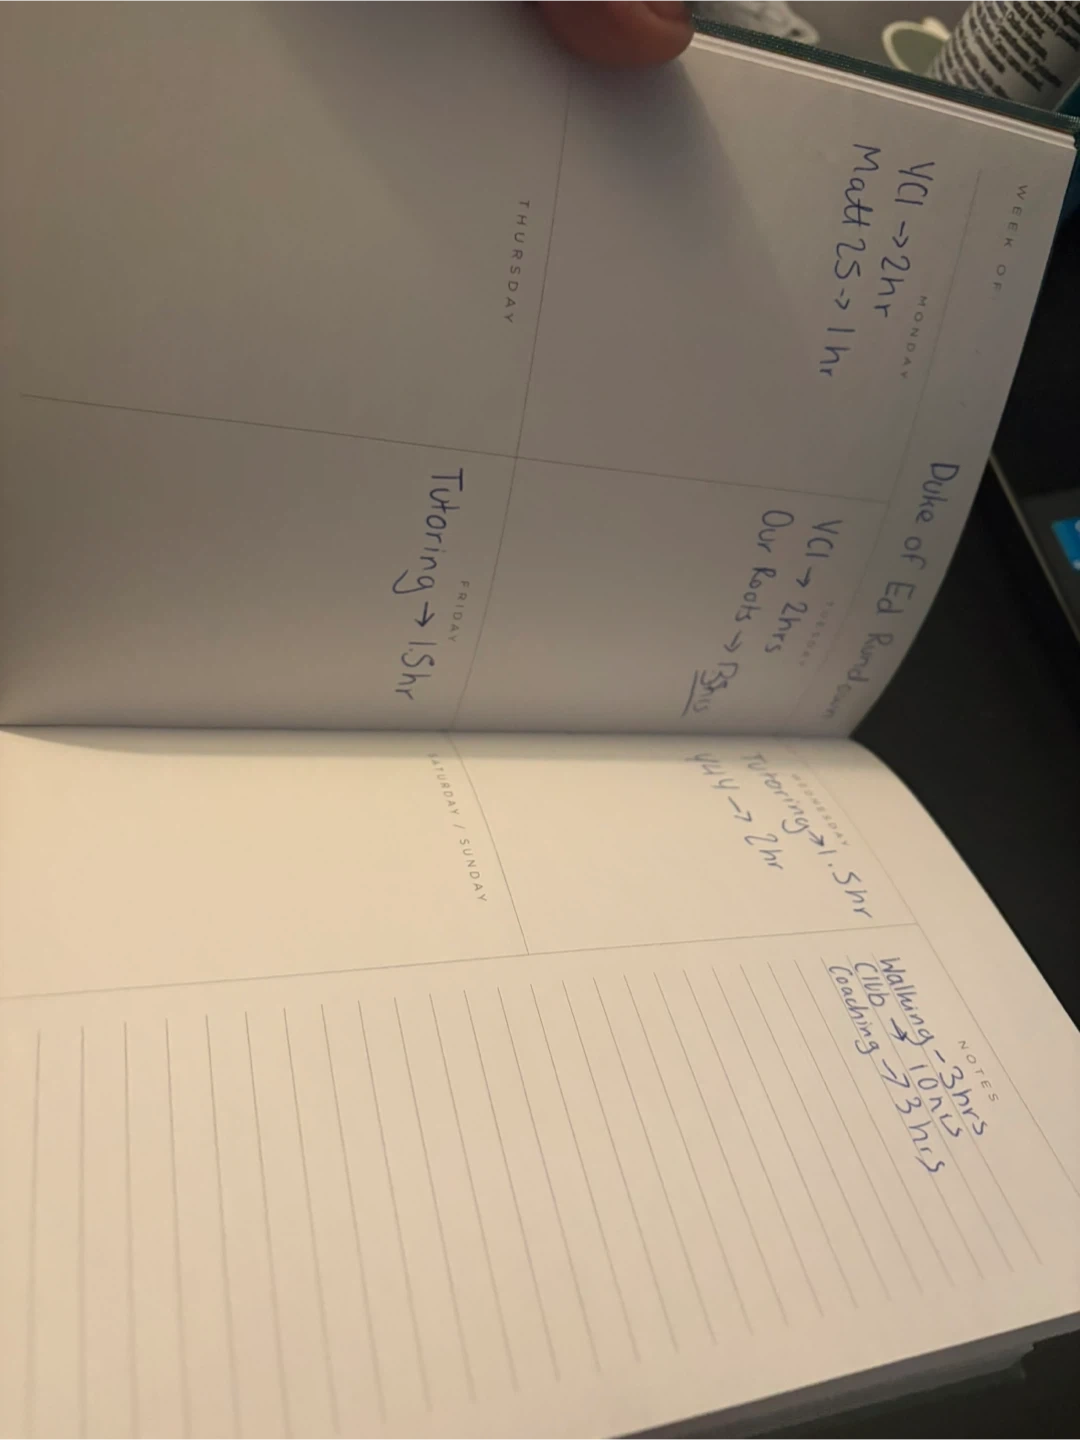 WEEK OF:
Duke of Ed Rundown
MONDAY
VCI → 2hr
Matt 25 → 1 hr
TUESDAY
VCI → 2hrs
Our Roots →
WEDNESDAY
Tutoring → 1.5hr
→ 2hr
THURSDAY
FRIDAY
Tutoring → 1.5hr
SATURDAY / SUNDAY
NOTES
Walking - 3hrs
Club → 10hrs
Coaching → 3hrs